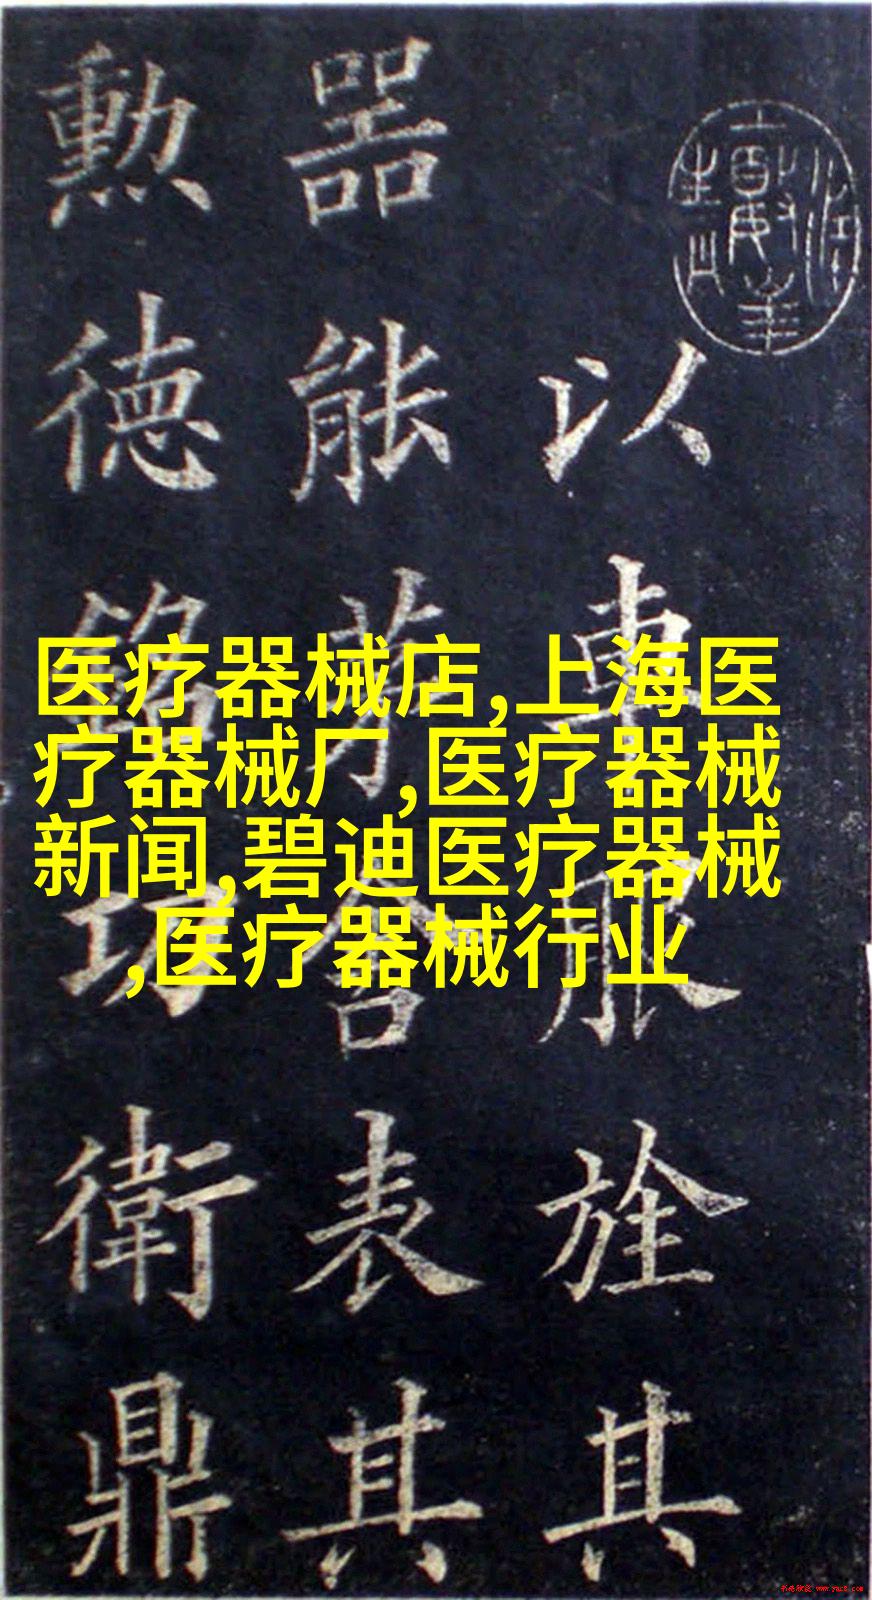 医疗器械店,上海医
疗器械厂,医疗器械
新闻,碧迪医疗器械
,医疗器械行业
以車服旌其
器能表其
勲德銘功衛鼎
www.yac8.com